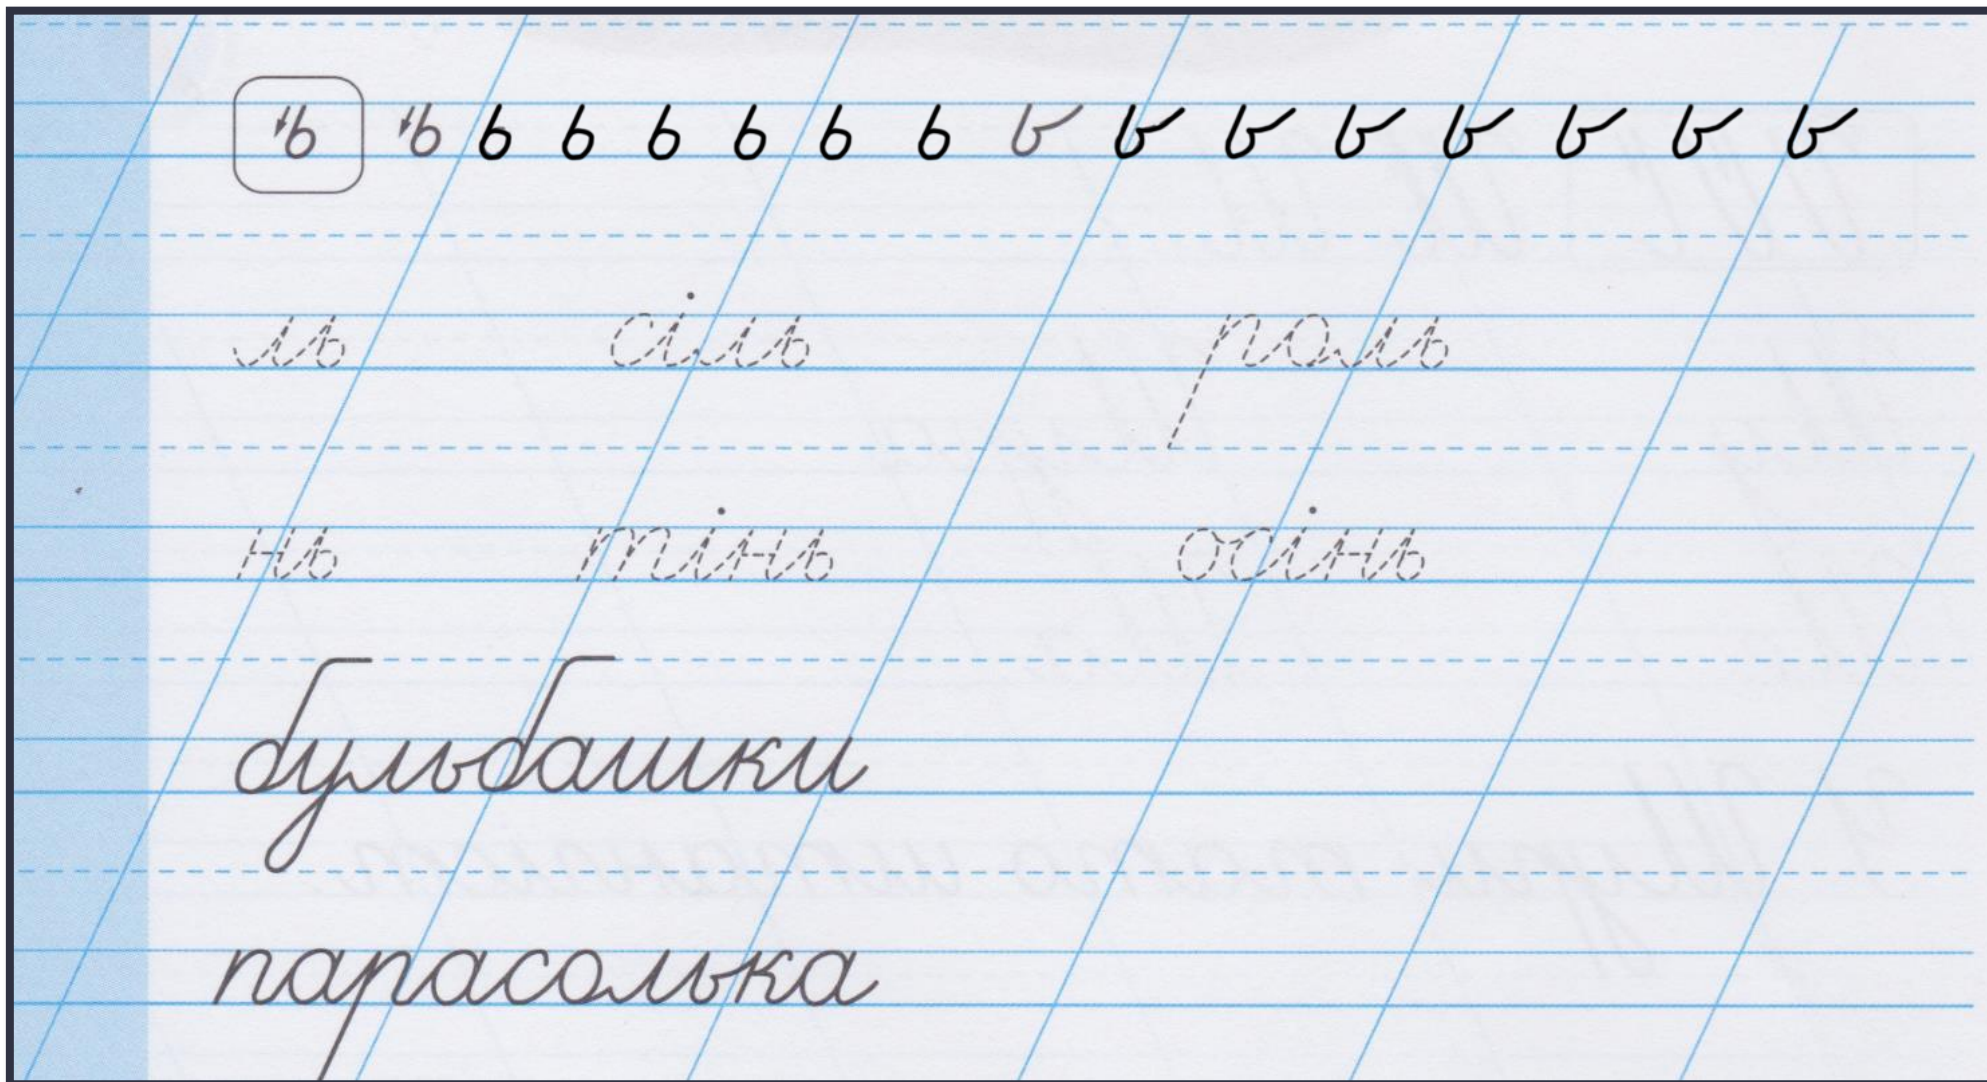 ь ь ь ь ь ь ь ь ь ь ь ь ь ь ь ь
ль сіль роль
нь тінь осінь
бульбашки
парасолька